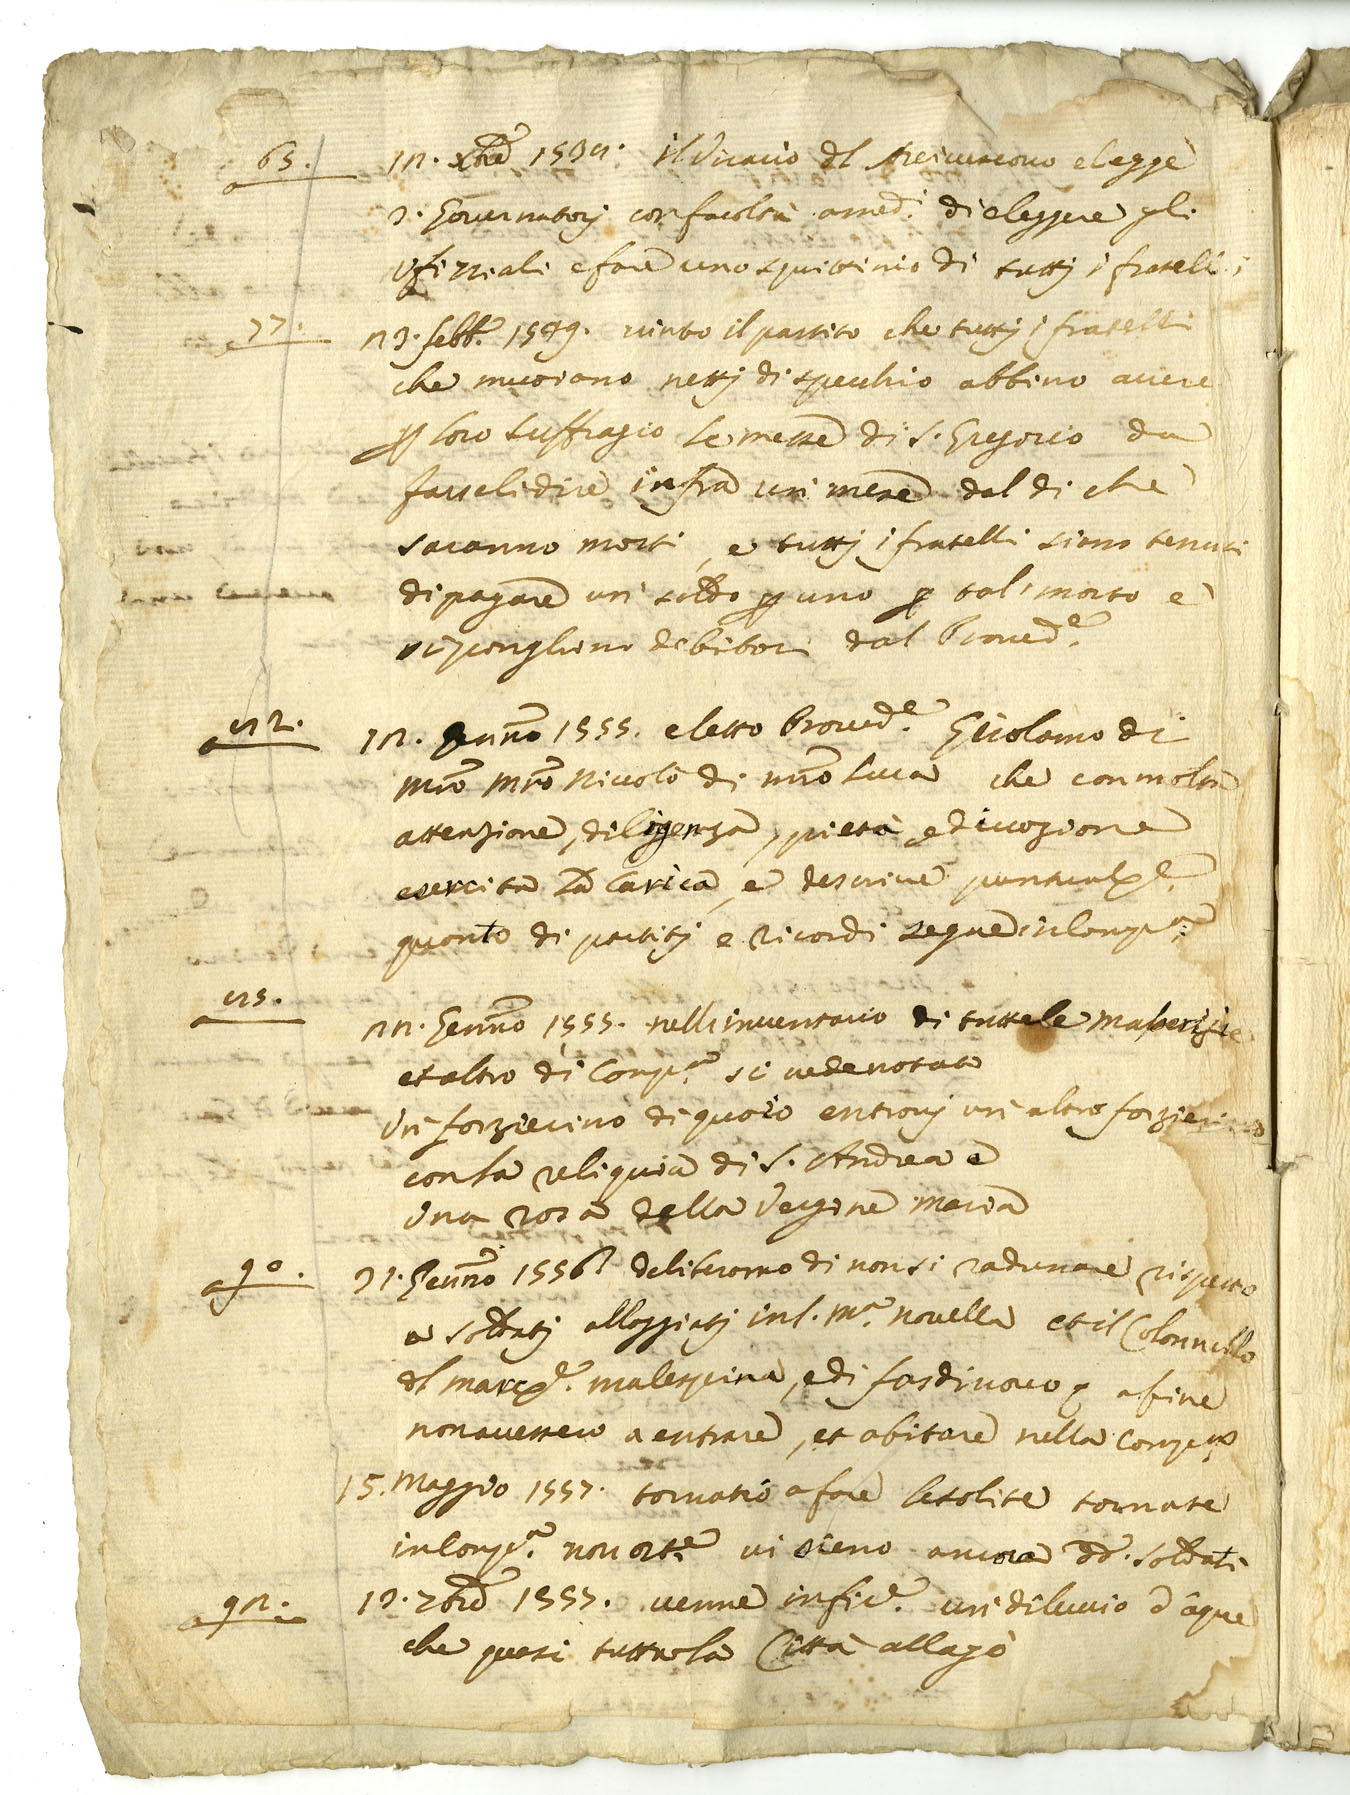 65.
12. xbre 1534. il Vicario dl Arcivescovo elegge
3. Governatorj con facoltà a med.i di eleggere gli
Ufizziali e fare uno squittinio di tuttj i fratelli
77.
23. febb.o 1549. vinto il partito che tuttj i fratelli
che muoiano nettj di specchio abbino avere
p loro suffragio le messe di S. Gregorio da
farseli dire infra un mese dal di che
saranno morti, e tuttj i fratelli sieno tenuti
di pagare un soldo p uno p tal morto e
si ponghino debitori dal Proved.e
82.
12. Genn.o 1555. eletto Proved.e Girolamo di
mro mro Niccolò di mro Luca che con molta
attenzione, diligenza, pietà, e divozione
esercita la Carica, e descrive puntualme.
quanto di partitj e ricordi segue in Comp.a
85.
22. Genn.o 1555. nell inventario di tutte le masserizie
et altro di Comp.a si vede notato
Un forzierino di quoio entrovj un altro forzierino
con la reliquia di S. Andrea e
Una rosa della Vergine Maria
90.
31. Genn.o 1556. deliberorno di non si radunare rispetto
a soldatj alloggiatj in S. M.a novella et il Colonnello
dl march.e malespina, e di fosdinovo p afine
non avessero a entrare, et abitare nella Comp.a
15. Maggio 1557. tornasi a fare le solite tornate
in Comp.a non ost.e vi sieno ancora dd. soldati
92.
13. 7bre 1557. venne in fir.e un diluvio d'aque
che quasi tutta la Città allagò